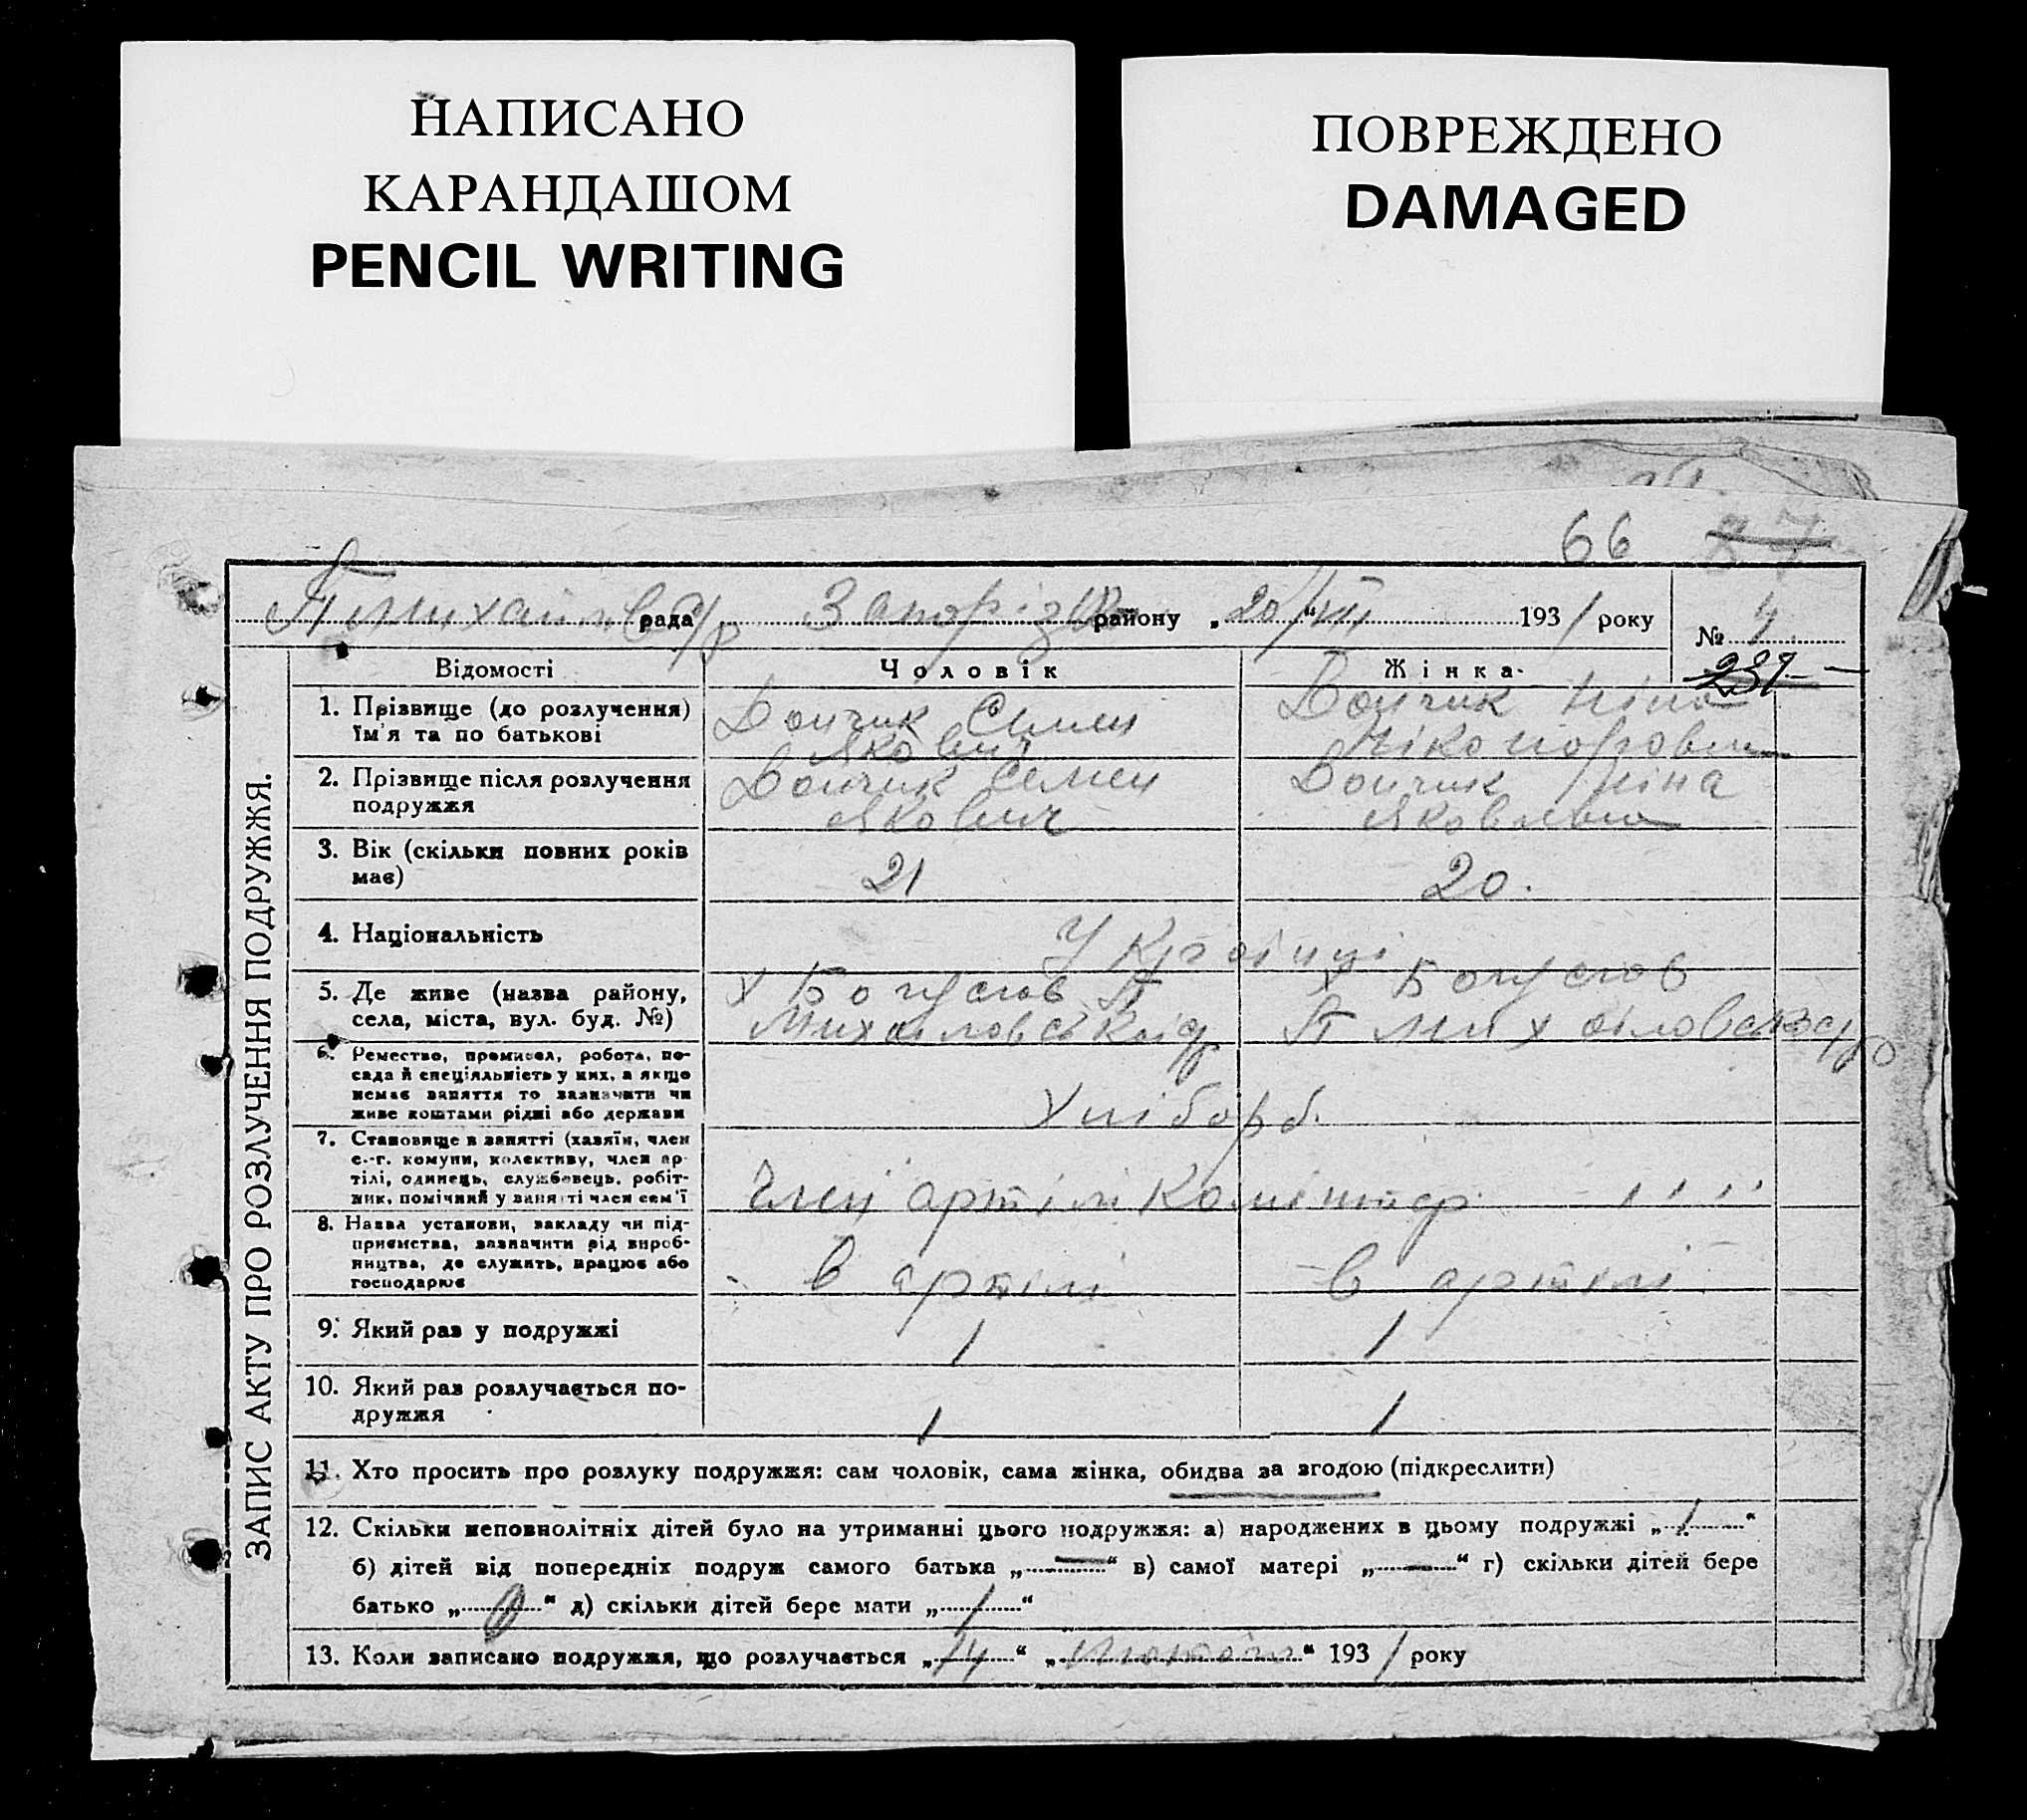 НАПИСАНО
КАРАНДАШОМ
PENCIL WRITING
ПОВРЕЖДЕНО
DAMAGED
66 37
рада Запоріз району „20/VII" 1931 року
№ 4
239
Відомості Чоловік Жінка
1. Прізвище (до розлучення) Семен Ніна
їм'я та по батькові Якович Никопоровна
2. Прізвище після розлучення Семен Ніна
подружжя Якович Яковлевна
3. Вік (скільки повних років 21 20.
має)
4. Національність Українці
5. Де живе (назва району, х Богуслов П х Богуслов
села, міста, вул. буд. №) П
6. Ремество, промисел, робота, по-
сада й спеціяльність у них, а якщо
немає заняття то зазначити чи
живе коштами рідні або держави
Хліборб.
7. Становище в занятті (хазяїн, член
с.-г. комуни, колективу, член ар-
тілі, одинець, службовець, робіт-
ник, помічний у занятті член сем'ї
Член артілі
8. Назва установи, закладу чи під-
приємства, зазначити рід вироб-
ництва, де служить, працює або
господарює
в артілі в артілі
9. Який раз у подружжі 1 1
10. Який раз розлучається по-
дружжя 1 1
11. Хто просить про розлуку подружжя: сам чоловік, сама жінка, обидва за згодою (підкреслити)
12. Скільки неповнолітніх дітей було на утриманні цього подружжя: а) народжених в цьому подружжі „1"
б) дітей від попередніх подруж самого батька „—" в) самої матері „—" г) скільки дітей бере
батько „0" д) скільки дітей бере мати „1"
13. Коли записано подружжя, що розлучається „14" „Лютого" 1931 року
ЗАПИС АКТУ ПРО РОЗЛУЧЕННЯ ПОДРУЖЖЯ.